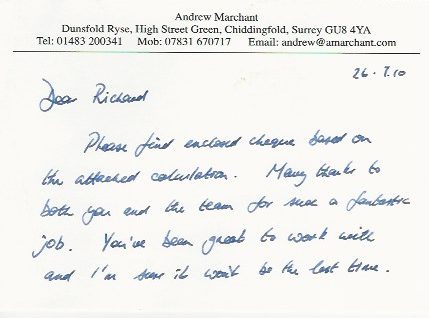 Andrew Marchant
Dunsfold Ryse, High Street Green, Chiddingfold, Surrey GU8 4YA
Tel: 01483 200341 Mob: 07831 670717 Email: andrew@amarchant.com
26.7.10
Dear Richard
Please find enclosed cheque based on
the attached calculation. Many thanks to
both you and the team for such a fantastic
job. You've been great to work with
and I'm sure it won't be the last time.